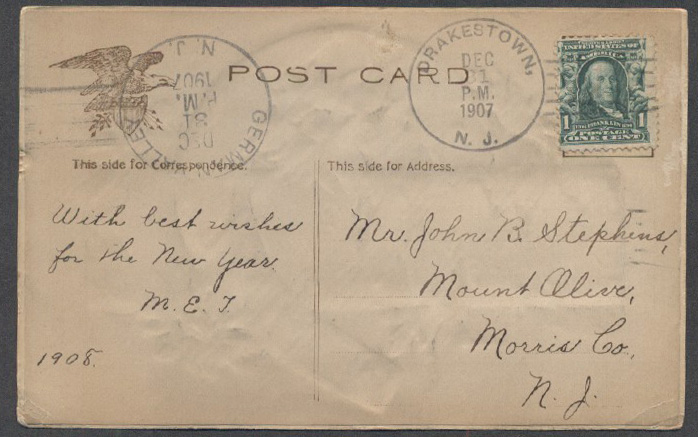 POST CARD
DRAKESTOWN,
DEC
31
P.M.
1907
N. J.
N. J.
1907
P.M.
31
DEC
UNITED STATES OF
AMERICA
1 FRANKLIN 1
POSTAGE
ONE CENT
This side for Correspondence.
This side for Address.
With best wishes
for the New Year.
M. E. T.
1908.
Mr. John B. Stephens,
Mount Olive,
Morris Co.,
N. J.